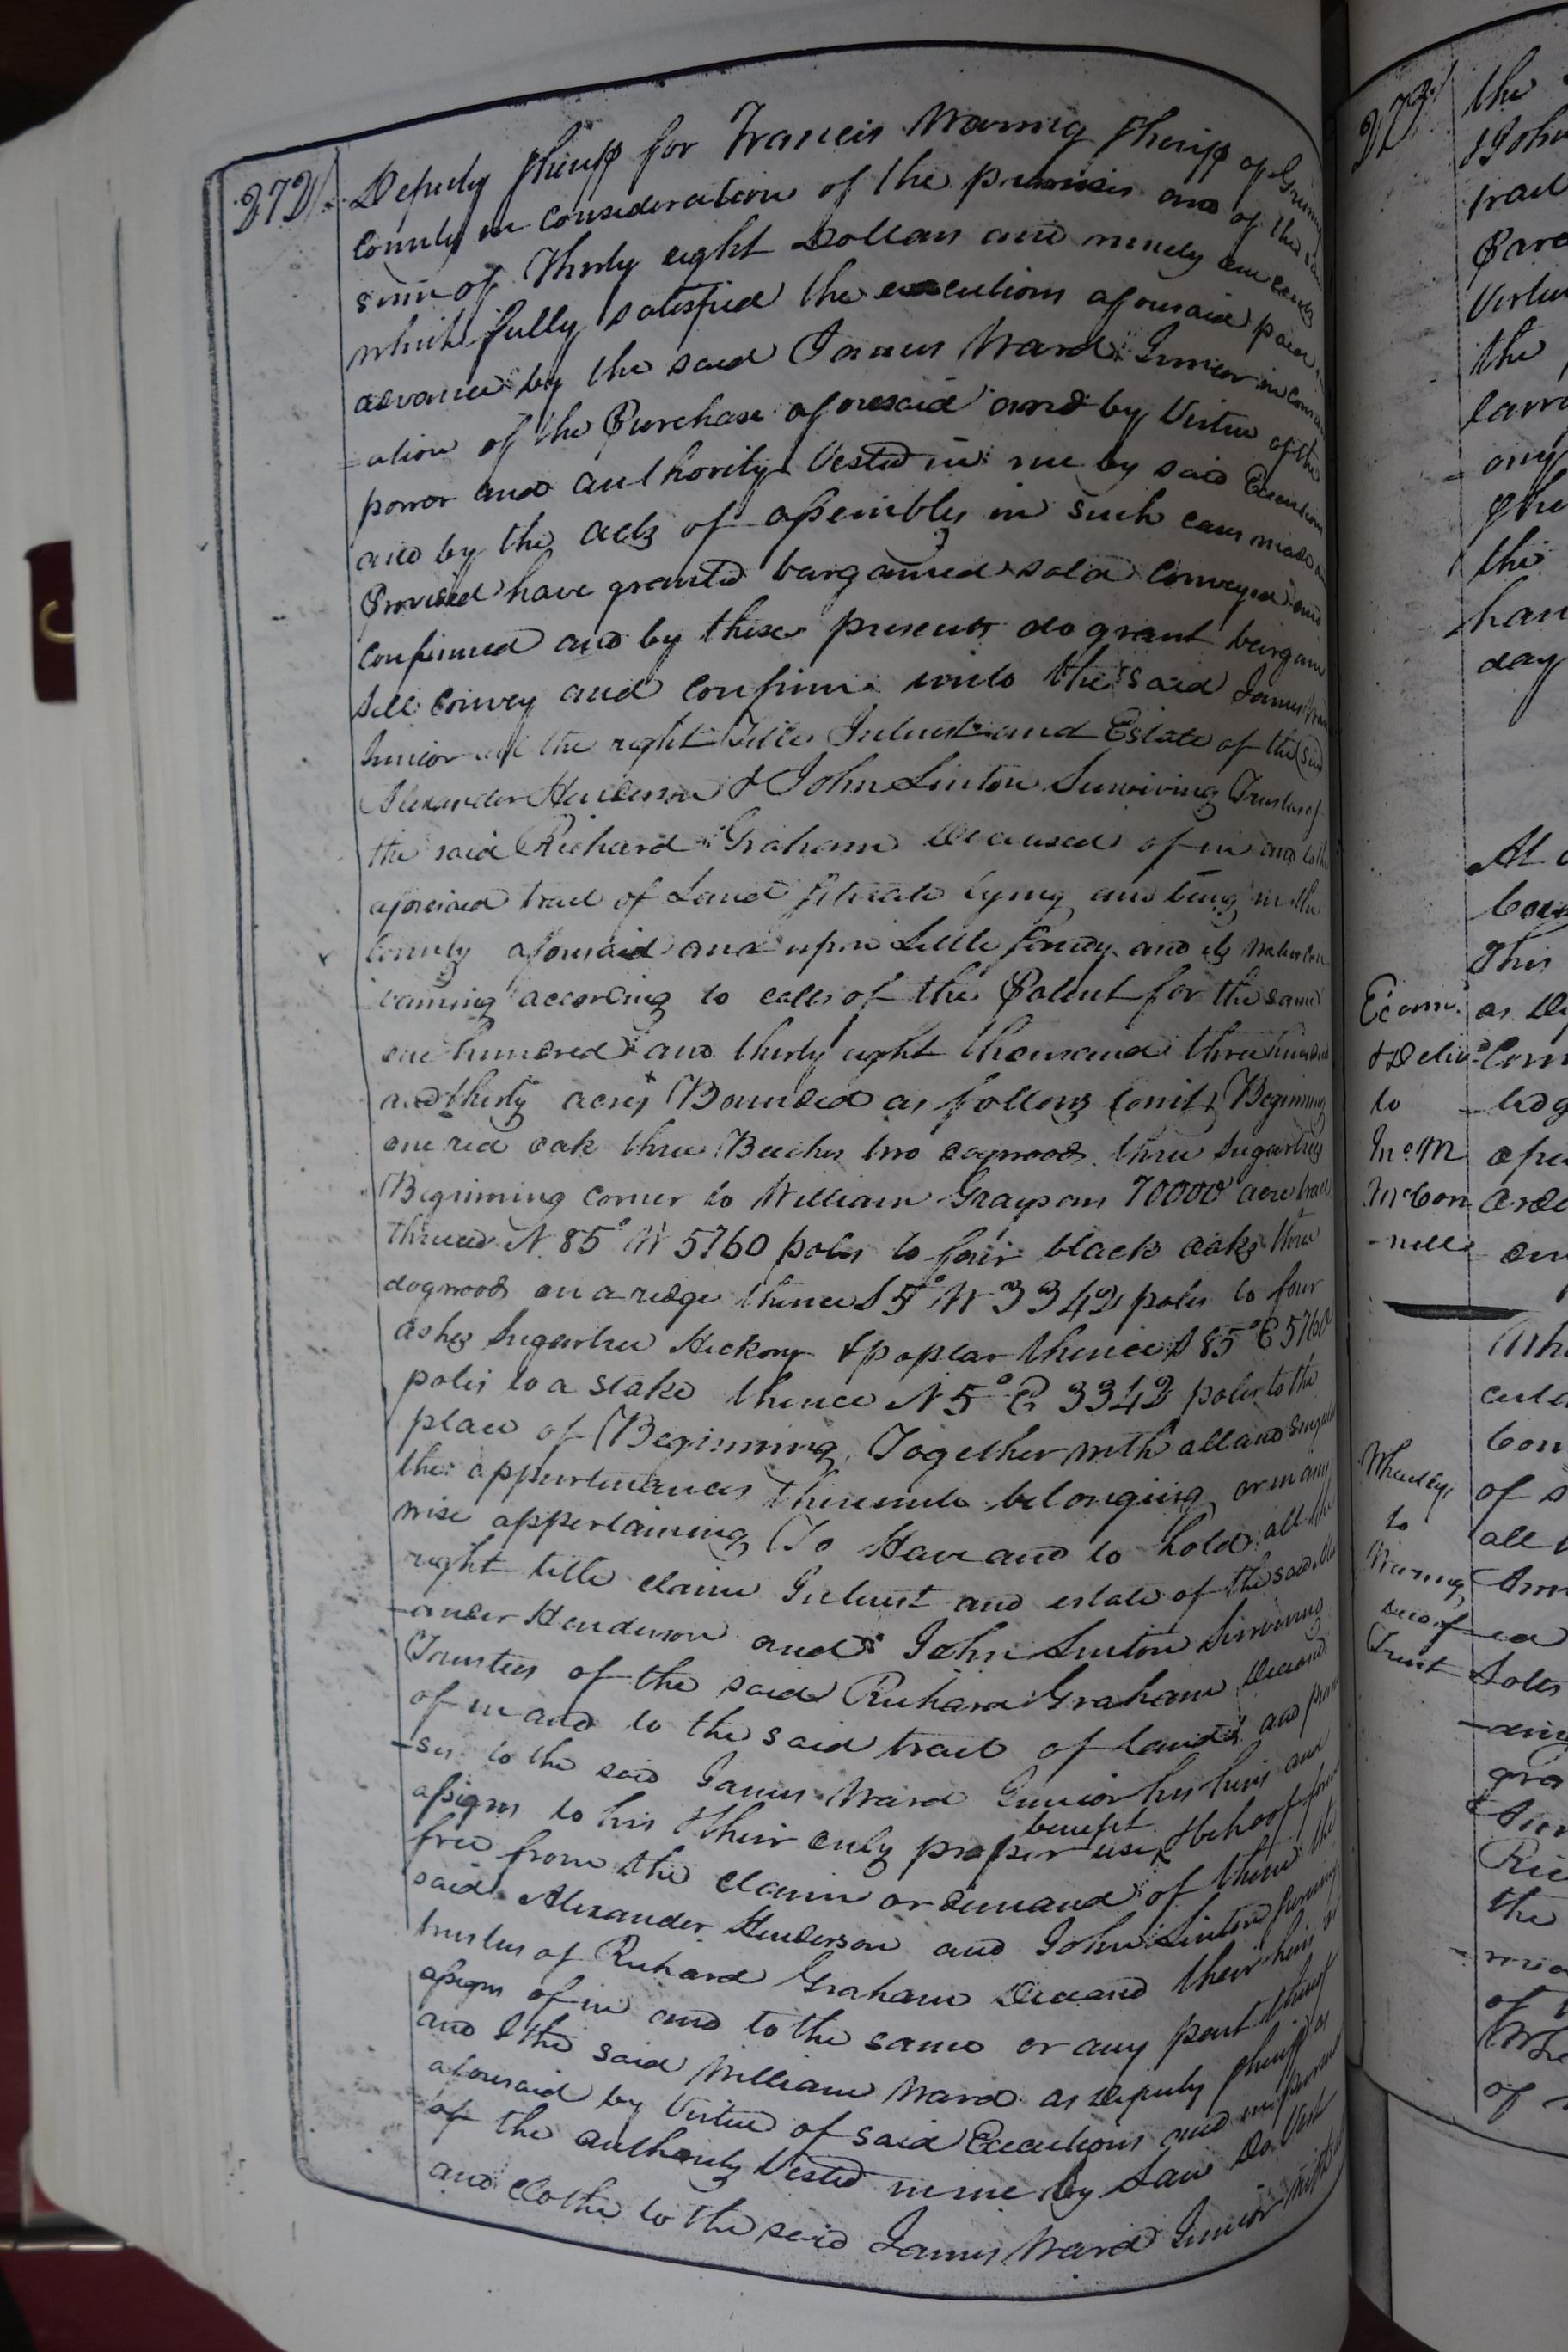 272
Deputy Sheriff for Francis Waring Sheriff of
County in consideration of the premises and of the
sum of Thirty eight Dollars and ninety one cents
which fully satisfied the executions aforesaid paid
advance by the said James Ward Junior in
=ation of the Purchase aforesaid and by Virtue of the
power and authority Vested in me by said Execution
and by the acts of assembly in such cases made
Provided have granted bargained sold Conveyed and
Confirmed and by these presents do grant bargain
sell Convey and Confirm unto the said James
Junior all the right Title Interest and Estate of the said
Alexander Henderson & John Linton Surviving Trustees of
the said Richard Graham Deceased of in and to the
aforesaid tract of Land Situate lying and being in the
County aforesaid and upon Little Sandy and its waters
taining according to calls of the Patent for the same
one hundred and thirty eight thousand three hundred
and thirty acres Bounded as follows (towit) Beginning
one red oak three Beeches two dogwoods three Sugartrees
Beginning corner to William Graysons 70000 acre tract
thence N 85° W 5760 poles to four black oaks three
dogwoods on a ridge thence S 5° W 3342 poles to four
ashes Sugartree Hickory & poplar thence S 85° E 5760
poles to a stake thence N 5° E 3342 poles to the
place of Beginning Together with all and
the appurtenances thereunto belonging or in any
wise appertaining To Have and to hold all the
right title claim Interest and estate of the said
-ander Henderson and John Linton Surviving
Trustees of the said Richard Graham Deceased
of in and to the said tract of land and
-ses to the said James Ward Junior his heirs and
assigns to his & their only proper use benefit & behoof
free from the claim or demand of them the
said Alexander Henderson and John Linton
trustees of Richard Graham Deceased their heirs or
assigns of in and to the same or any part thereof
and I the said William Ward as Deputy Sheriff as
aforesaid by Virtue of said Executions and in
of the authority Vested in me by Law Do Vest
and clothe to the said James Ward Junior
273
the
&John
the
any
the
day
At a
This
Exam.
as
&Deliv.d
to
Wheatley
to
Waring
deed of
Trust
of
all
the
of
of